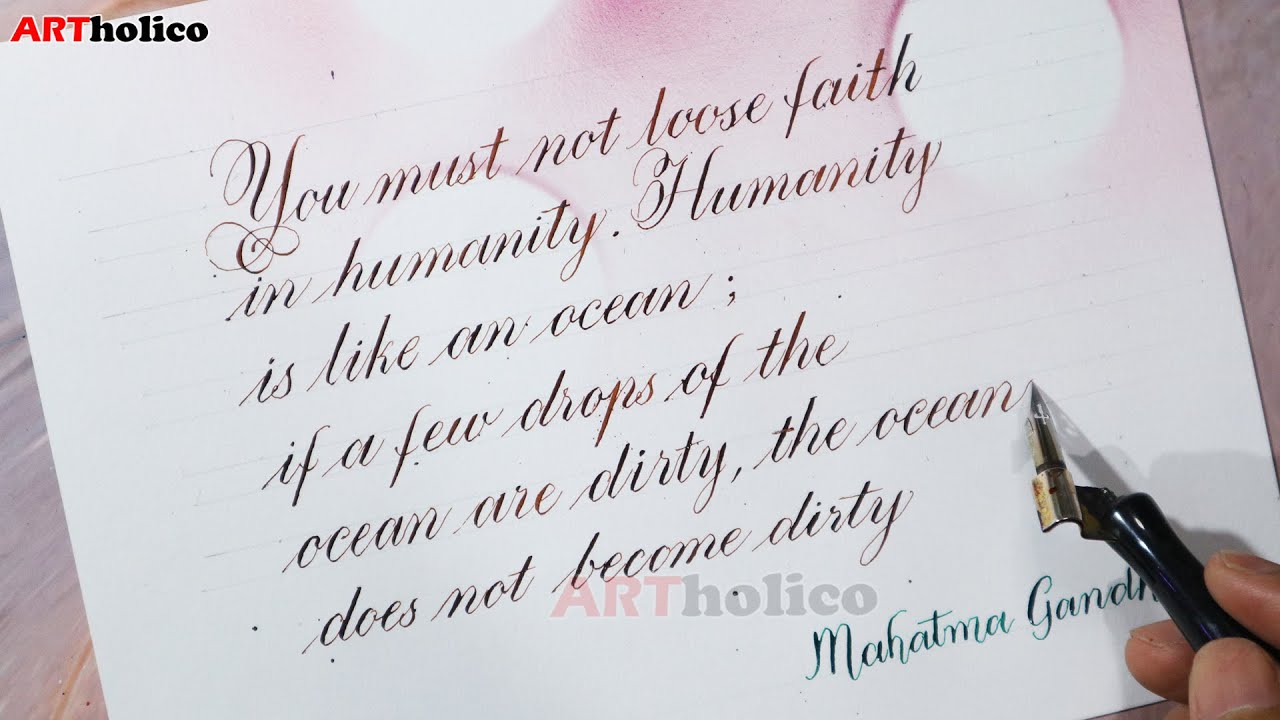 ARTholico
You must not loose faith
in humanity. Humanity
is like an ocean ;
if a few drops of the
ocean are dirty, the ocean
does not become dirty
ARTholico
Mahatma Gandh